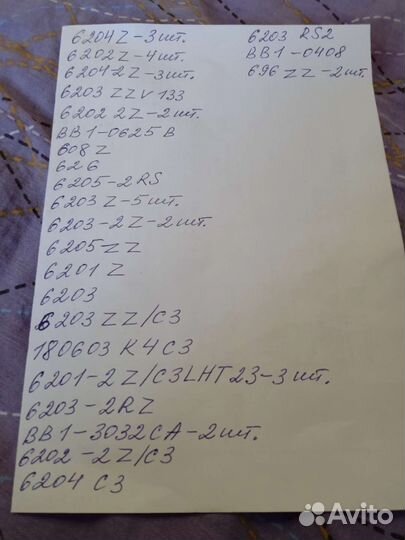 6204Z-3шт.
6202Z-4шт.
6204 2Z-3шт.
6203 ZZV133
6202 2Z-2шт.
BB1-0625B
608Z
626
6205-2RS
6203Z-5шт.
6203-2Z-2шт.
6205ZZ
6201Z
6203
6203ZZ/C3
180603K4C3
6201-2Z/C3LHT23-3шт.
6203-2RZ
BB1-3032CA-2шт.
6202-2Z/C3
6204 C3
6203 RS2
BB1-0408
696 ZZ-2шт.
Avito